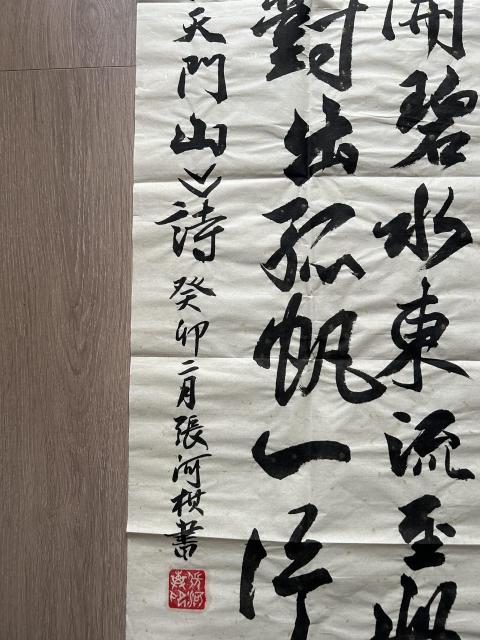 開碧水東流至此
對出孤帆一片
天門山》詩癸卯二月張河棋書